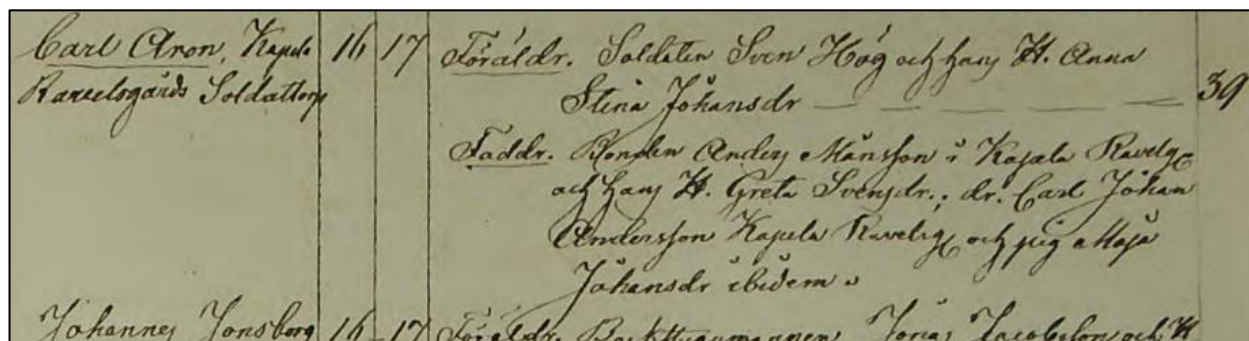 Carl Aron, Kapela 16 17 Föräldr. Soldaten Sven Hög och hans H. Anna
Ravelsgårds Soldattorp Stina Johansdr 39
Faddr. Bonden Anders Månsson i Kapela Ravelsg
och hans H. Greta Svensdr.; dr. Carl Johan
Andersson Kapela Ravelsg och pig Maja
Johansdr ibidem
Johannes Jonsberg 16 17 Föräldr. Jonas Jacobson och H